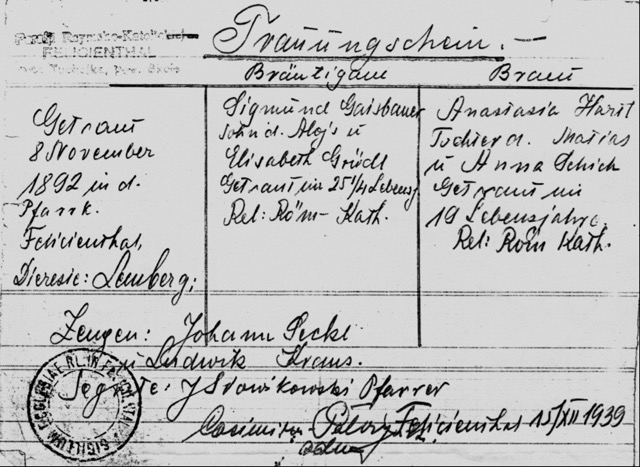 Parafia Rzymsko-Katolicka
FELICIENTHAL
Trauungschein.-
Bräutigam
Braut
Getraut
8 November
1892 in d.
Pfarrk.
Felicienthal,
Dieresie: Lemberg;
Sigmund Gaisbauer
Sohn d. Alojs u
Elisabeth Grödl
Getraut im 25 1/4 Lebensj
Rel: Röm-Kath.
Anastasia Hartl
Tochter d. Matias
u Anna Schich
Getraut im
19 Lebensjahre,
Rel: Röm Kath.
Zeugen: Johann Seckl
u Ludwik Kraus.
J Słowikowski Pfarrer
Felicienthal 15/XII 1939
SIGILLUM ECCLESIAE